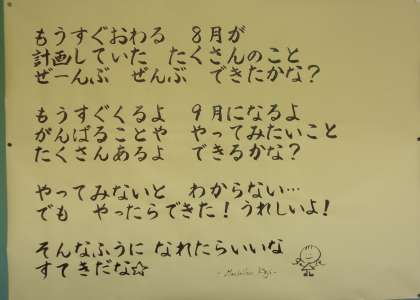 もうすぐおわる　8月が
計画していた　たくさんのこと
ぜーんぶ　ぜんぶ　できたかな？
もうすぐくるよ　9月になるよ
がんばることや　やってみたいこと
たくさんあるよ　できるかな？
やってみないと　わからない…
でも　やったらできた！うれしいよ！
そんなふうに なれたらいいな
すてきだな☆